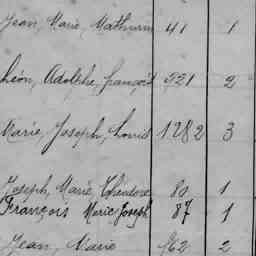 Jean, Marie, Mathurin 41 1
Léon, Adolphe, françois 521 2
Marie, Joseph, Louis 1282 3
Joseph, Marie, Théodore 80 1
François Marie Joseph 87 1
Jean, Marie 962 2